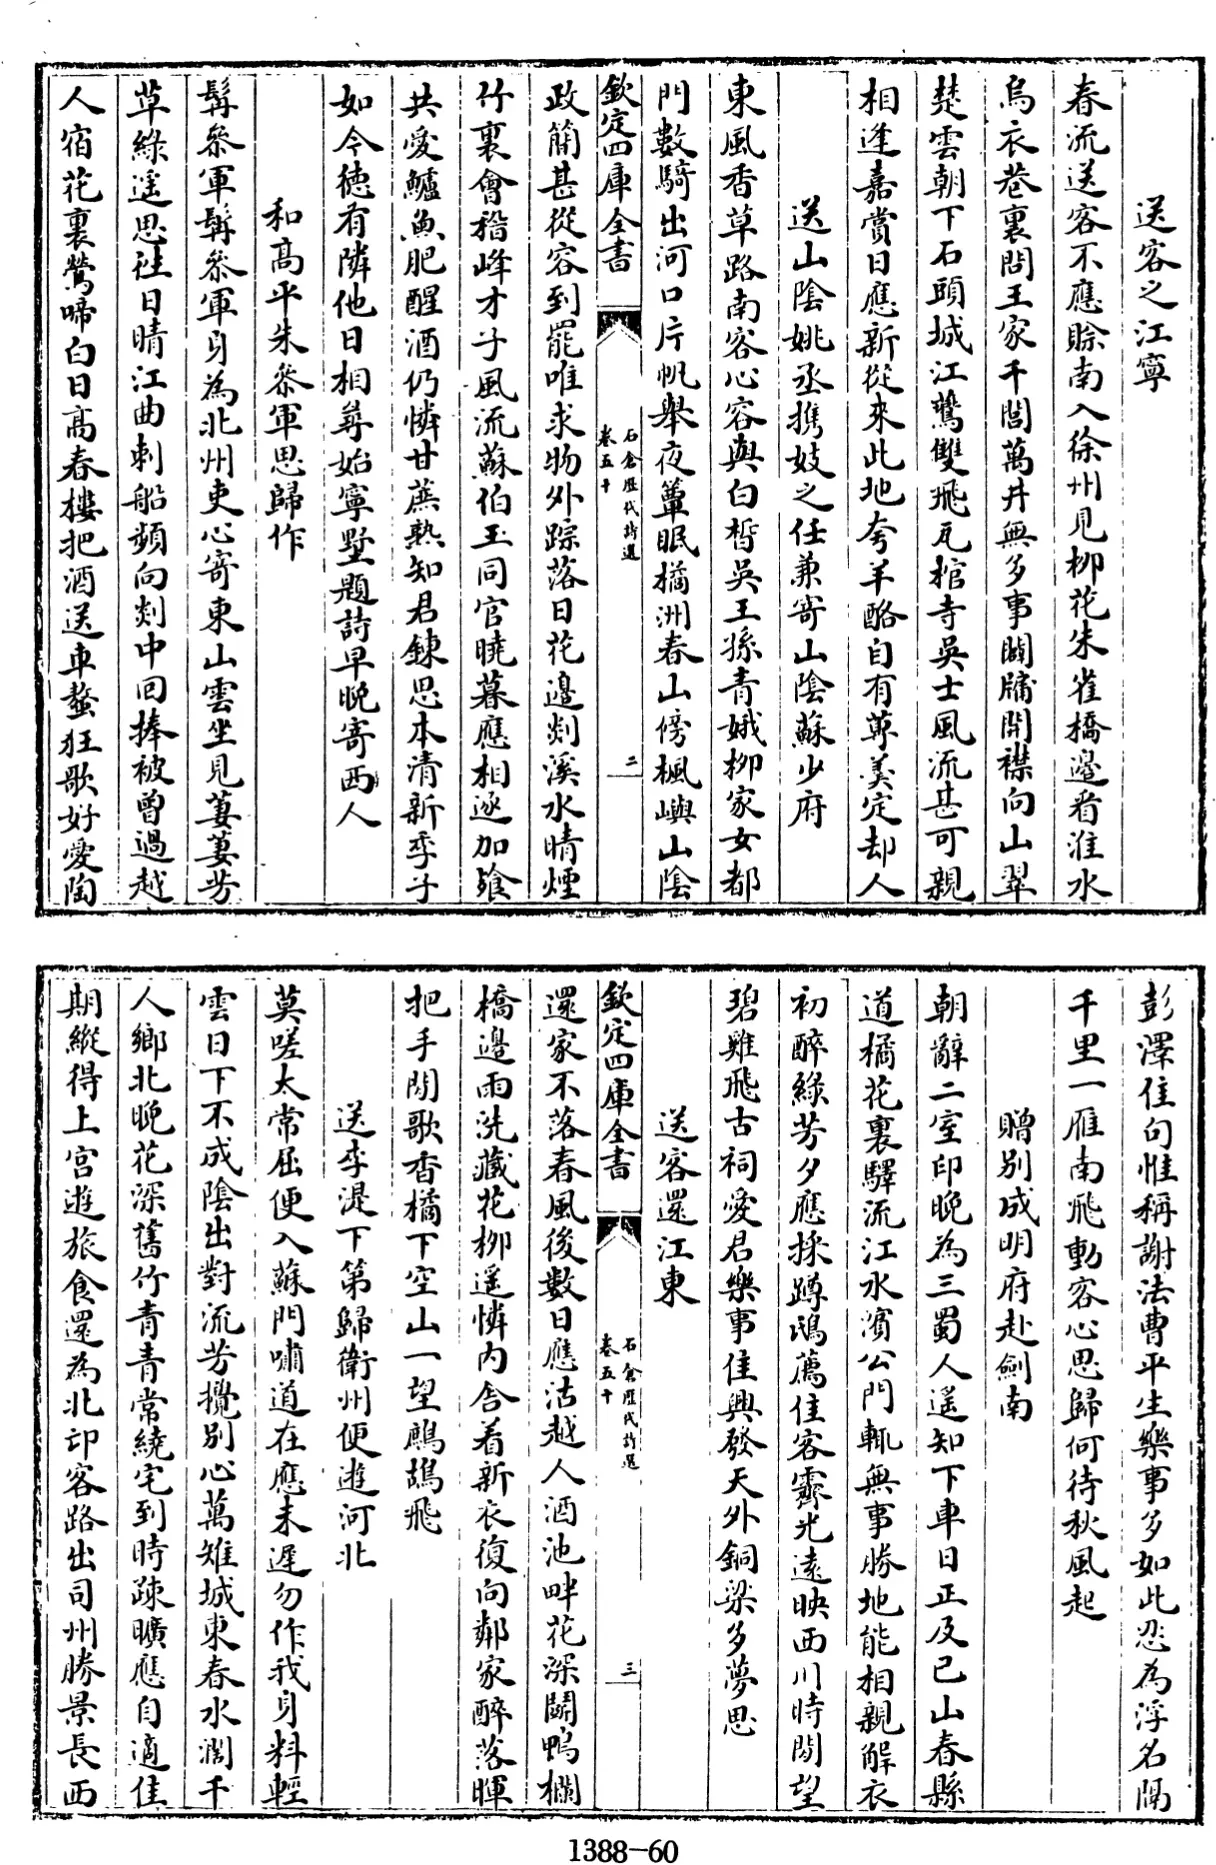 送客之江寧
春流送客不應賒南入徐州見柳花朱雀橋邊看淮水
烏衣巷裏問王家千閭萬井無多事闢牖開襟向山翠
楚雲朝下石頭城江鷰雙飛瓦棺寺吳士風流甚可親
相逢嘉賞日應新從來此地夸羊酪自有蓴羹定却人
送山陰姚丞携妓之任兼寄山陰蘇少府
東風香草路南客心容與白皙吳王孫青娥柳家女都
門數騎出河口片帆舉夜簟眠橘洲春山傍楓嶼山陰
欽定四庫全書
石倉歷代詩選
卷五十
二
政簡甚從容到罷唯求物外踪落日花邊剡溪水晴煙
竹裏會稽峰才子風流蘇伯玉同官曉暮應相逐加飡
共愛鱸魚肥醒酒仍憐甘蔗熟知君鍊思本清新季子
如今徳有隣他日相尋始寧墅題詩早晚寄西人
和高平朱參軍思歸作
髯參軍髯參軍身為北州吏心寄東山雲坐見萋萋芳
草綠遥思往日晴江曲刺船頻向剡中回捧被曾過越
人宿花裏鶯啼白日高春樓把酒送車螯狂歌好愛陶
彭澤佳句惟稱謝法曹平生樂事多如此忍為浮名隔
千里一雁南飛動客心思歸何待秋風起
贈别成明府赴劍南
朝辭二室印晚為三蜀人遥知下車日正及巴山春縣
道橘花裏驛流江水濱公門輒無事勝地能相親解衣
初醉綠芳夕應採蹲鴟薦佳客霽光遠映西川時閒望
碧雞飛古祠愛君樂事佳興發天外銅梁多夢思
送客還江東
欽定四庫全書
石倉歷代詩選
卷五十
三
還家不落春風後數日應沽越人酒池畔花深鬬鴨欄
橋邊雨洗藏花柳遥憐内舍着新衣復向鄰家醉落暉
把手閒歌香橘下空山一望鷓鴣飛
送李湜下第歸衛州便遊河北
莫嗟太常屈便入蘇門嘯道在應未遲勿作我身料輕
雲日下不成陰出對流芳攪别心萬雉城東春水濶千
人鄉北晚花深舊竹青青常繞宅到時疎曠應自適佳
期縱得上宫遊旅食還為北邙客路出司州勝景長西
1388-60